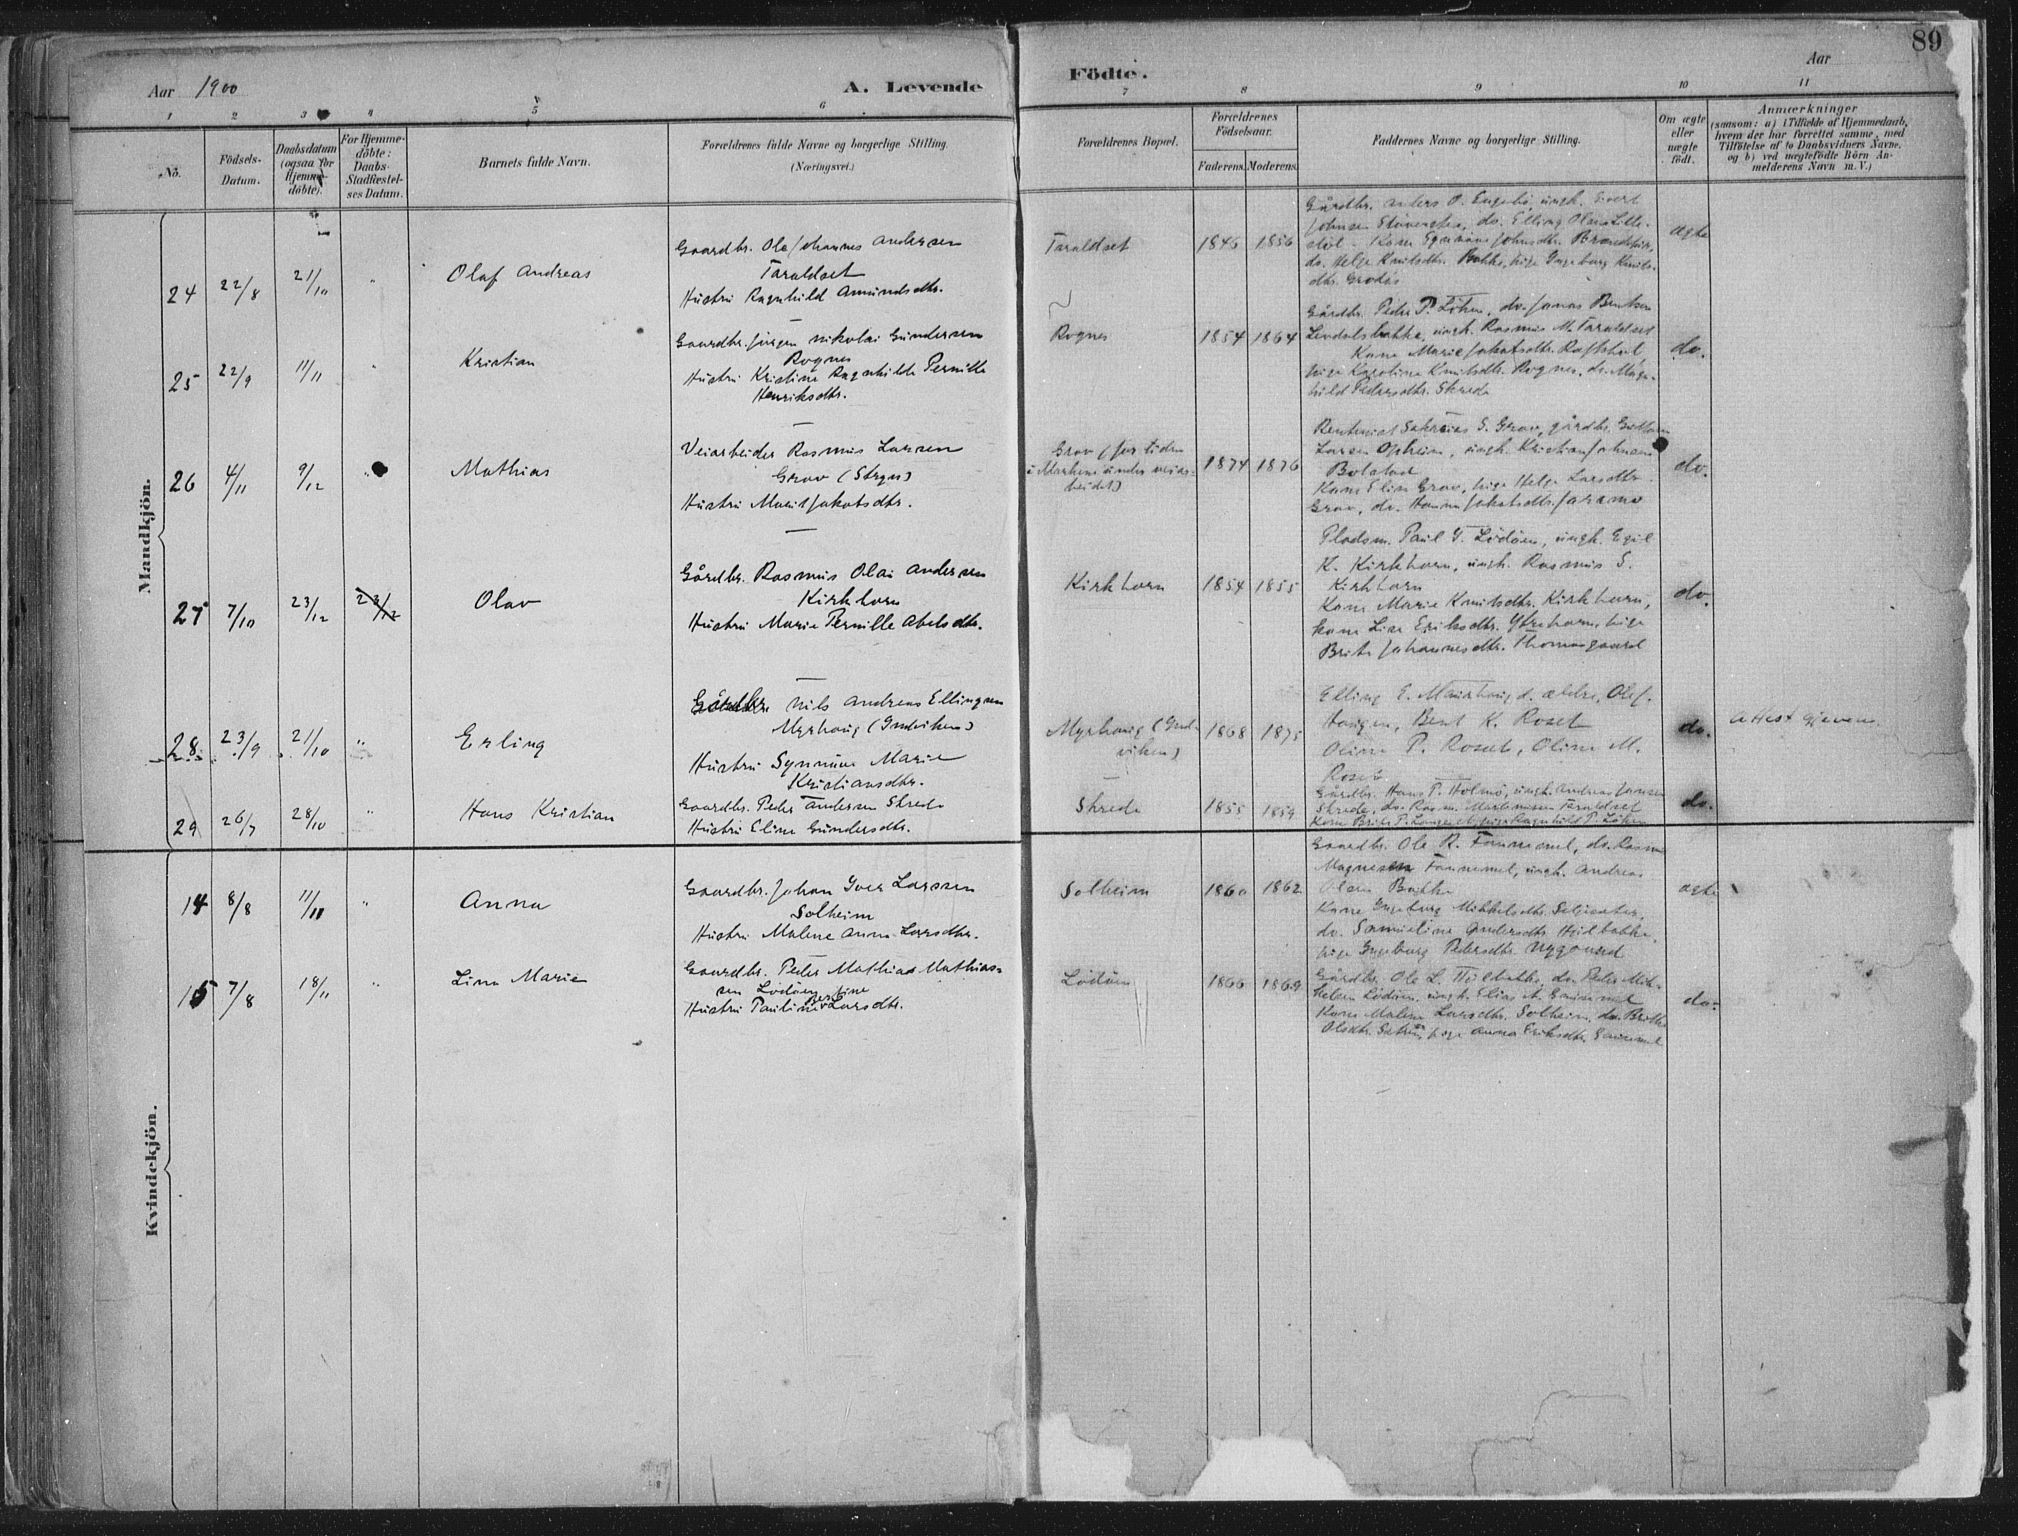 89
Aar 1900
A. Levende
Födte.
Aar
1 2 3 4 5 6 7 8 9 10 11
No.
Födsels-
Datum.
Daabsdatum
(ogsaa for
Hjemme-
döbte).
For Hjemme-
döbte:
Daabs-
Stadfæstel-
ses Datum.
Barnets fulde Navn.
Forældrenes fulde Navne og borgerlige Stilling.
(Næringsvei.)
Forældrenes Bopæl.
Forældrenes
Födselsaar.
Faderens. Moderens.
Faddernes Navne og borgerlige Stilling.
Om ægte
eller
uægte
födt.
Anmærkninger
(saasom: a) i Tilfælde af Hjemmedaab,
hvem der har forrettet samme, med
Tilföielse af to Daabsvidners Navne,
og b) ved uægtefödte Börn An-
melderens Navn m. V.)
Mandkjön.
24 22/8 21/10 " Olaf Andreas
Gaardbr. Ole Johannes Andersen
Taraldset
Hustru Ragnhild Amundsdtr.
Taraldset 1846 1856
Gårdbr. Anders O. Engebø, ungk. Evert
Johnsen, do. Elling Olsen
Kone Synnøve Johnsdtr.
do. Helge Knutsdtr. Bakke, pige Ingeborg Knuts-
dtr. Grodås
ægte
25 22/9 11/11 " Kristian
Gaardbr. Jørgen Nikolai Gundersen
Rognes
Hustru Kristine Ragnhilde Pernille
Henriksdtr.
Rognes 1854 1864
Gårdbr. Peder P. Løken, do. Jonas Bentsen
Lendalsbakke, ungk. Rasmus M. Taraldset
Kone Marie Jakobsdtr.
pige Karoline Knutsdtr. Rognes, do. Magn-
hild Pedersdtr. Skrede
do.
26 4/11 9/12 " Mathias
Veiarbeider Rasmus Larsen
Grov (Stryn)
Hustru Marit Jakobsdtr.
Grov (for tiden
i Markene under veiar-
beidet)
1874 1876
Rentenist Sakrias S. Grov, gårdbr.
Larsen Opheim, ungk. Kristian Johnsen
Bolstad
Kone Elin Grov, pige Helge Larsdtr.
Grov, do. Hanna Jakobsdtr.
do.
27 7/10 23/12 23/12 Olav
Gårdbr. Rasmus Olai Andersen
Kirkhorn
Hustru Marie Pernille Abelsdtr.
Kirkhorn 1854 1855
Pladsm. Paul T. Lødøen, ungk. Egil
K. Kirkhorn, ungk. Rasmus S.
Kirkhorn
Kone Marie Knutsdtr. Kirkhorn,
kone Lise Eriksdtr. Ytrehorn, pige
Brite Johannesdtr. Thomasgaard
do.
28 23/9 21/10 " Erling
Gårdbr. Nils Andreas Ellingsen
Myrhaug (Indviken)
Hustru Synnøve Marie
Kristiansdtr.
Myrhaug (Ind-
viken)
1868 1875
Elling E. Myrhaug d. ældre, Olef
Haugen, Bent K. Roset
Oline P. Roset, Oline M.
Roset
do.
Attest given.
29 26/7 28/10 " Hans Kristian
Gaardbr. Peder Andersen Skrede
Hustru Eline Gundersdtr.
Skrede 1855 1859
Gårdbr. Hans P. Holmø, ungk. Andreas Jonsen
Skrede, do. Rasm. Martinusen Taraldset
Kone Brite P. pige Ragnhild P. Løken
do.
Kvindekjön.
14 8/8 11/11 " Anna
Gaardbr. Johan Iver Larssen
Solheim
Hustru Malene Anna Larsdtr.
Solheim 1860 1862
Gaardbr. Ole R. Fannemel, do. Rasmus
Magnesen Fannemel, ungk. Andreas
Olsen Bakke
Kone Ingeborg Mikkelsdtr. Seljeseter,
do. Samueline Andersdtr. Hjelbakke,
pige Ingeborg Pedersdtr. Nygaard
ægte
15 7/8 18/11 " Lina Marie
Gaardbr. Peder Mathias Mathias-
sen Lødøen
Hustru Pauline Larsdtr.
Lødøen 1866 1869
Gårdbr. Ole L. Hjelbakke, do. Peder Mik-
kelsen Lødøen, ungk. Elias A.
Kone Malene Larsdtr. Solheim, do. Brithe
Olsdtr. pige Anna Eriksdtr.
do.